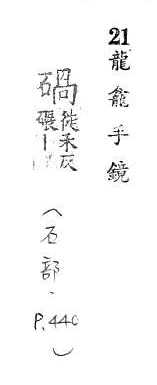 21龍龕手鏡
碢徒禾反
碾丨
（石部、P.440）